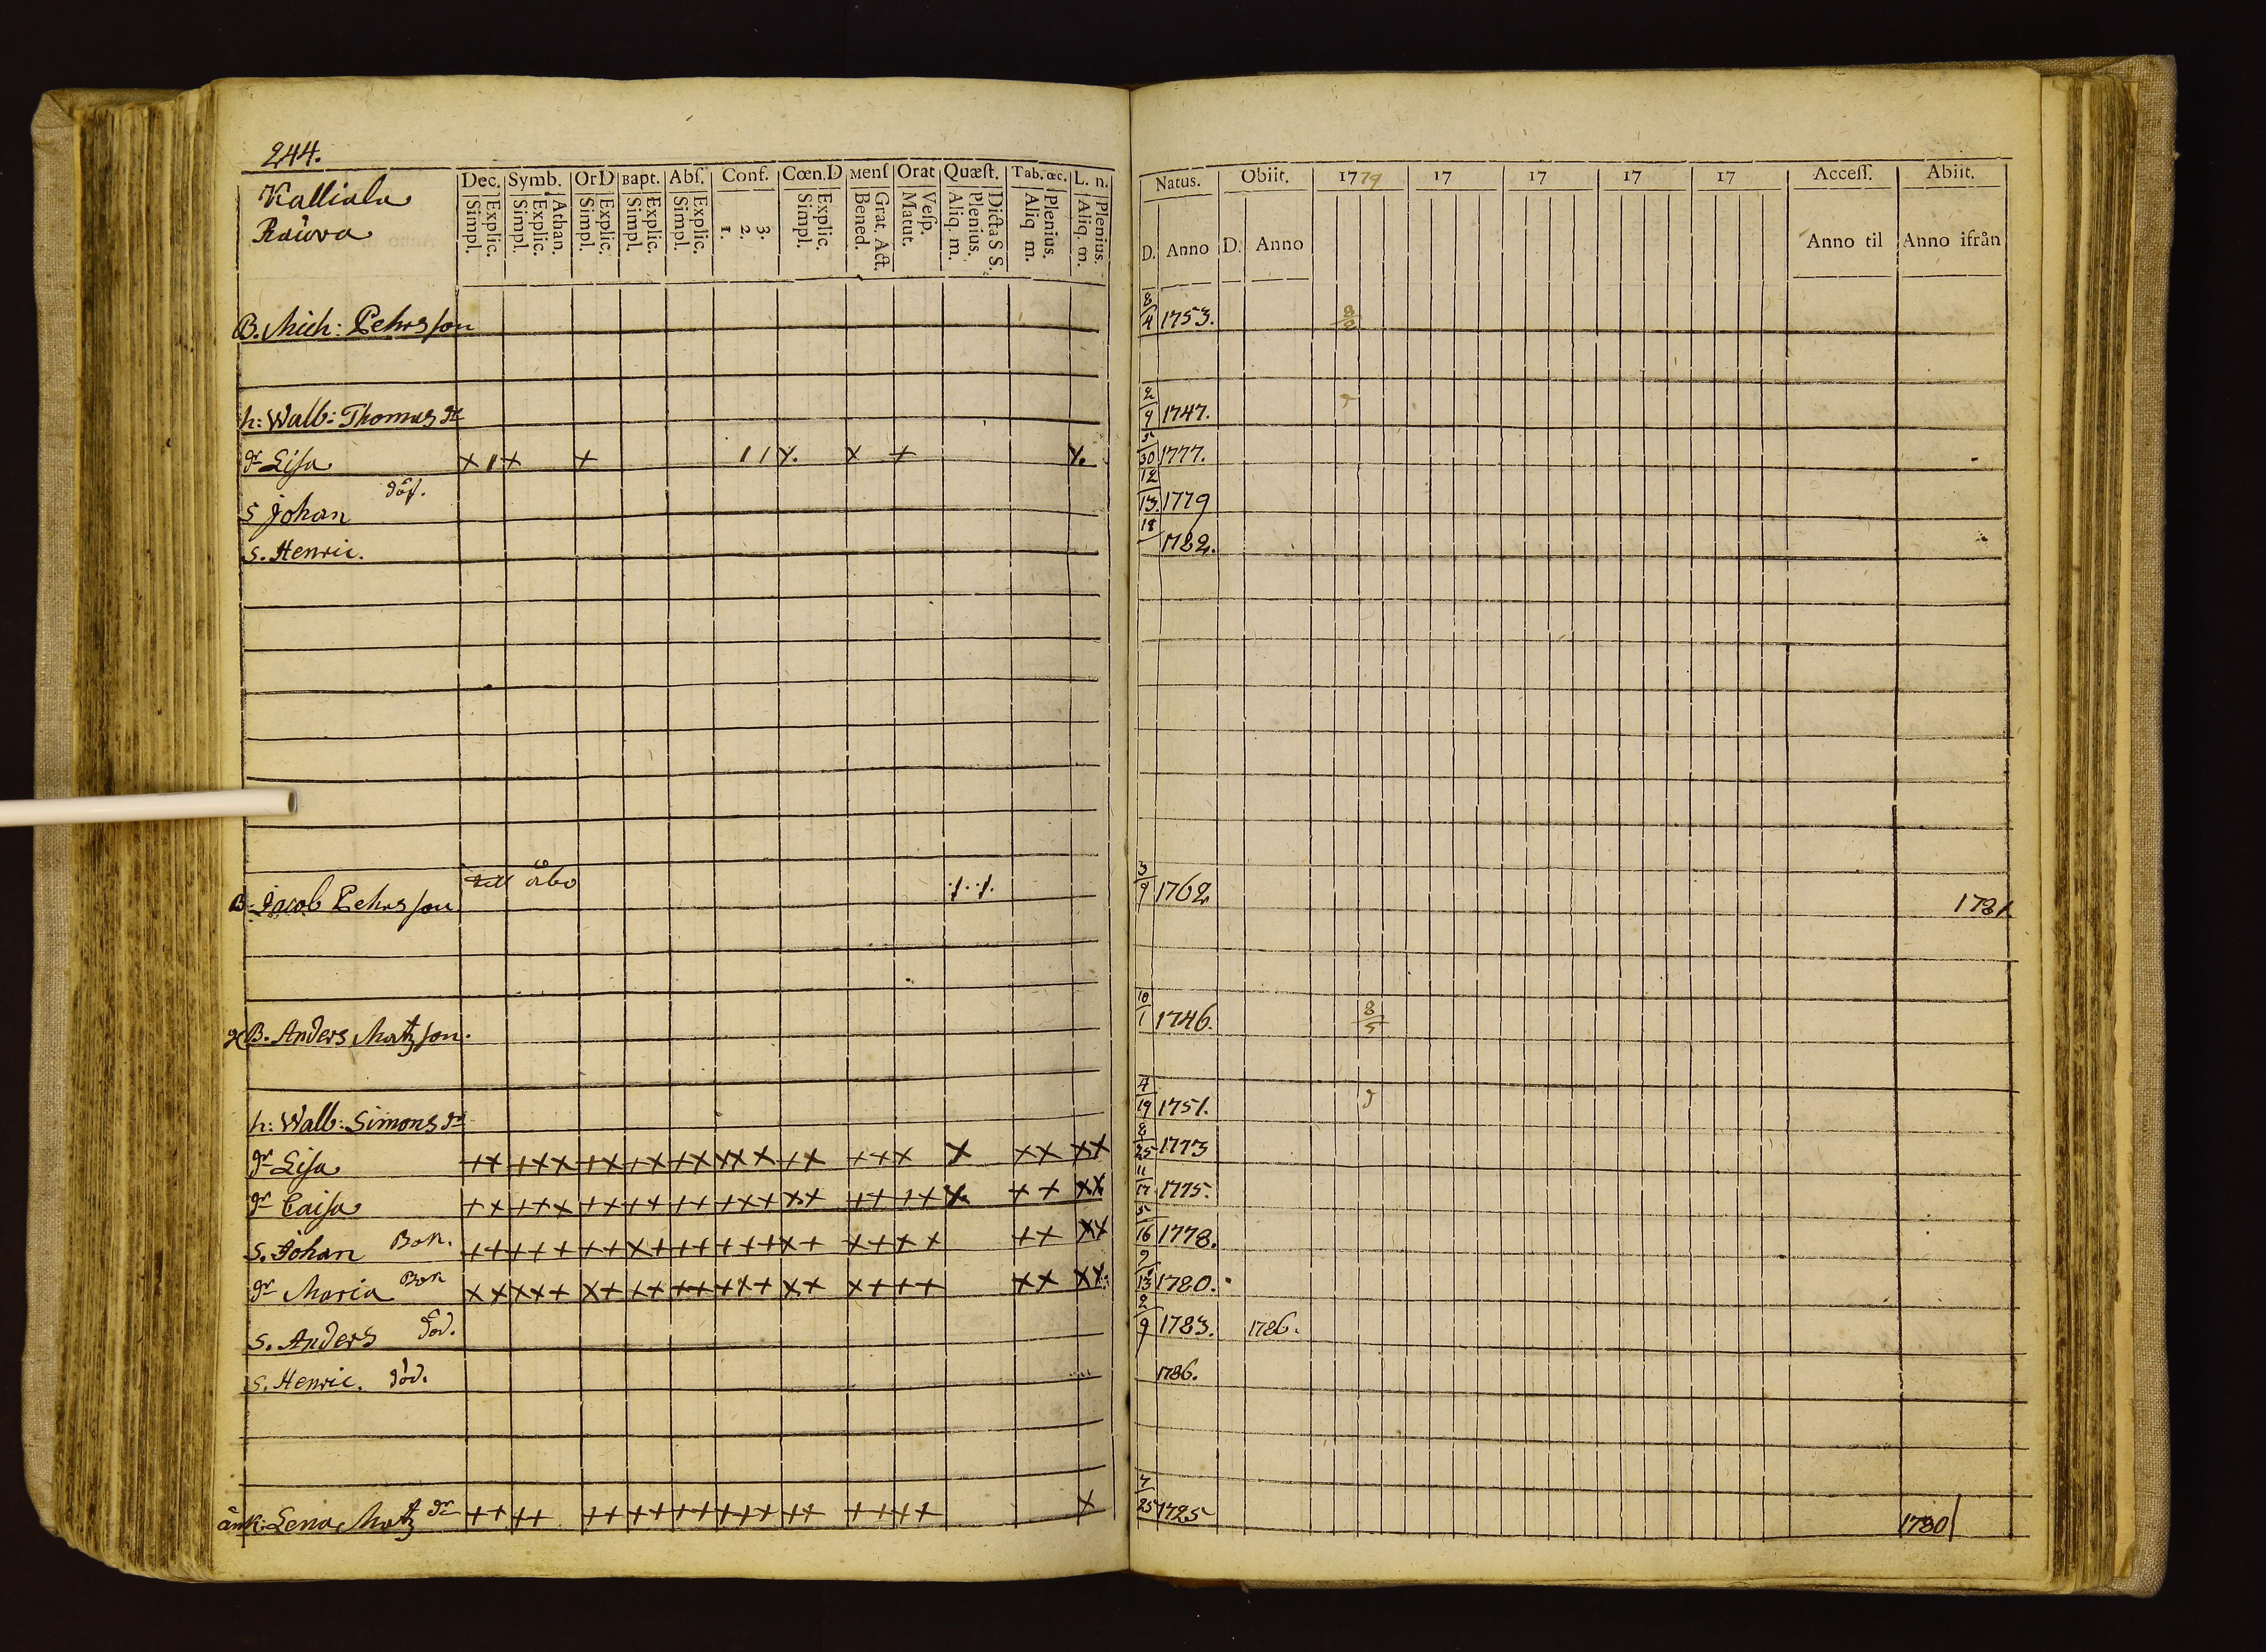 244.
Kalliala
Räiwa
Dec. Symb. OrD Bapt. Abs. Conf. Cœn.D Mens Orat Quæst. Tab. œc. L. n.
Simpl. Explic. Simpl. Explic. Athan. Simpl. Explic. Simpl. Explic. Simpl. Explic. 1. 2. 3. Simpl. Explic. Bened. Grat. Act. Matut. Vesp. Aliq. m. Plenius. Dicta S S. Aliq m. Plenius. Aliq. m. Plenius.
Natus. Obiit. 1779 17 17 17 17 Access. Abiit.
D. Anno D. Anno Anno til Anno ifrån
B. Mich: Pehrsson 8/4 1753.
h: Walb: Thomas dr 2/4 1747.
dr Lisa x 1 x x 1 1 x x x 5/30 1777.
S Johan död. 12/13 1779
S. Henric. 18 1782.
B. Jacob Pehrsson till åbo 3/9 1762 1781
B. Anders Matzson. 10/1 1746. 8/5
h: Walb: Simons dr 4/19 1751.
dr Lisa ++ +xx +x +x +x xxx +x ++x x xx xx 8/25 1773
dr Caisa ++ ++x ++ ++ ++ +++ xx ++ ++ x ++ xx 11/17 1775.
S. Johan Bok. ++ +++ ++ x+ ++ +++ x+ x+ xx ++ xx 5/16 1778.
dr Maria Bok xx xx+ x+ ++ ++ +++ x+ x+ ++ xx xx 9/13 1780.
S. Anders död. 2/9 1783. 1786.
S. Henric. död. 1786.
änk: Lena Matz dr ++ ++ ++ ++ ++ +++ ++ ++ ++ x 7/25 1725 1780